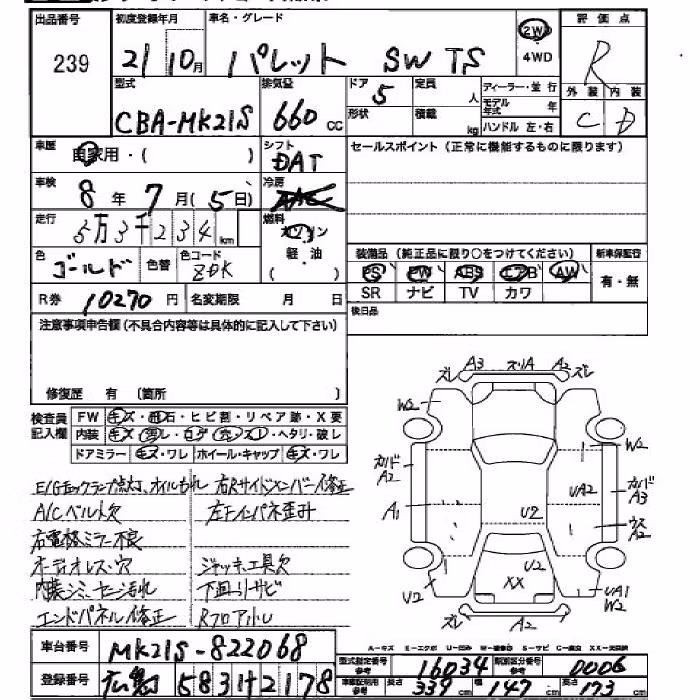 出品番号 初度登録年月 車名・グレード 評価点
239 21 10月 パレット SW TS 2W 4WD R
外装 内装
C D
型式 排気量 ドア 定員 ディーラー・並行
CBA-MK21S 660cc 5 人 モデル年式 年
形状 積載 kg ハンドル 左・右
車歴 自家用・( ) シフト DAT セールスポイント(正常に機能するものに限ります)
車検 8年7月(5日) 冷房 AAC
走行 5万3千234km 燃料 ガソリン 軽・油
色 ゴールド 色替 色コード ZDK
装備品(純正品に限り○をつけてください) 新車保証書
PS PW ABS エアB AW 有・無
SR ナビ TV カワ
R券 10270円 名変期限 月 日 後日品
注意事項申告欄(不具合内容等は具体的に記入して下さい)
修復歴 有 (箇所 )
検査員記入欄 FW キズ・飛石・ヒビ割・リペア跡・X要
内装 キズ・汚レ・コゲ・穴・スレ・ヘタリ・破レ
ドアミラー キズ・ワレ ホイール・キャップ キズ・ワレ
E/Gチェックランプ点灯、オイルもれ 右Rサイドメンバー修正
A/Cベルト欠 左Fインパネ歪み
右電格ミラー不良
オーディオレス・穴 ジャッキ工具欠
内装シミ、モール汚れ 下回りサビ
エンドパネル修正 Rフロアトレ
ズレ A3 スリA A2 ズレ
W2 W2
カバド A2 カバド A3
A1 UA2 ウス A2
U2
U2 XX U2 UA1 W2
ズレ A2 ズレ
車台番号 MK21S-822068
A−キズ E−エクボ U−凹み W−補修跡 S−サビ C−腐食 XX−交換済
登録番号 583 2178
型式指定番号 参考 16034 類別区分番号 参考 0006
車庫証明用 参考 長さ 339cm 幅 147cm 高さ 173cm